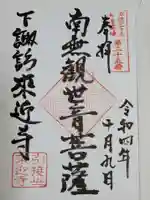 奉拝
令和四年
十月九日
南無観世音菩薩
下諏訪来迎寺